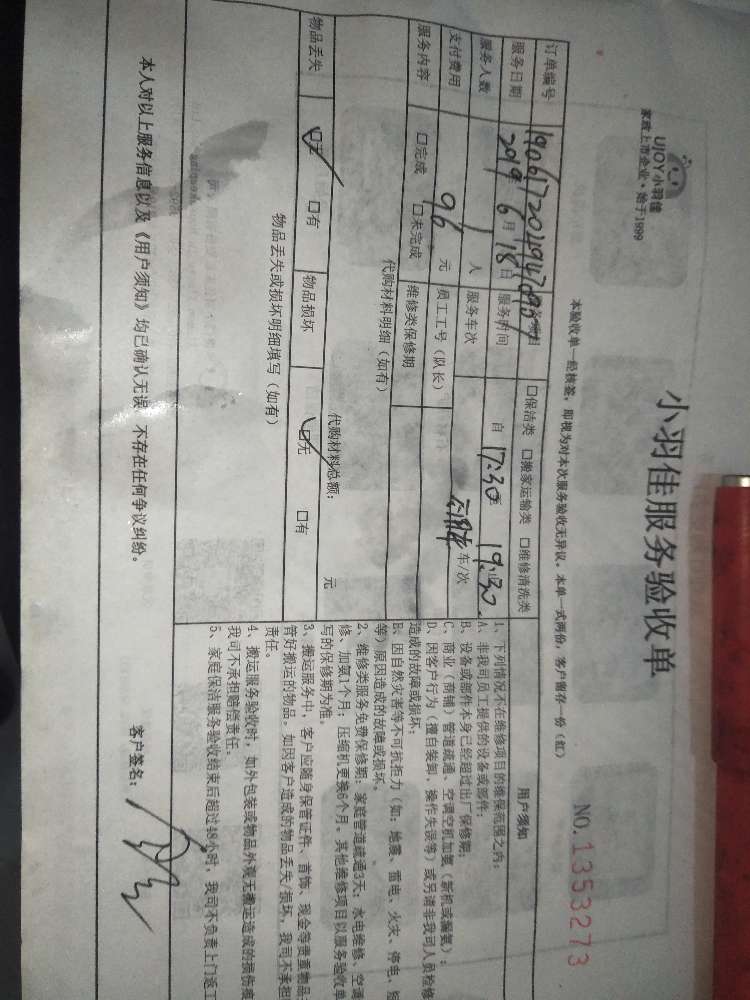 UJOY小羽佳
家政上市企业·始于1999
小羽佳服务验收单
NO.1353273
本验收单一经核签，即视为对本次服务验收无异议。本单一式两份，客户留存一份（红）
订单编号 □保洁类 □搬家运输类 □维修清洗类
服务日期 2019年6月18日 服务时间 自 17:30至 19:30
服务人数 1 人 服务车次 车/次
支付费用 96 元 员工工号（队长）
服务内容 □完成 □未完成 维修类保修期
代购材料明细（如有）
代购材料总额： 元
物品丢失 □无 □有 物品损坏 □无 □有
物品丢失或损坏明细填写（如有）
用户须知
1、下列情况不在维修项目的维保范围之内：
A、非我司员工提供的设备或部件；
B、设备或部件本身已经超过出厂保修期；
C、商业（商铺）管道疏通、空调空机加氨（新机或漏氨）；
D、因客户行为（擅自装卸、操作失误等）或另请非我司人员检修
造成的故障或损坏；
E、因自然灾害等不可抗拒力（如：地震、雷电、火灾、停电、短
等）原因造成的故障或损坏。
2、维修类服务免费保修期：家庭管道疏通3天；水电维修、空调
修、加氨1个月；压缩机更换6个月。其他维修项目以服务验收单
写的保修期为准。
3、搬运服务中，客户应随身保管证件、首饰、现金等贵重物品，
管好搬运的物品。如因客户造成的物品丢失/损坏，我司不承担
责任。
4、搬运服务验收时，如外包装或物品外观无搬运造成的损伤痕
我司不承担赔偿责任。
5、家庭保洁服务验收结束后超过48小时，我司不负责上门返工
本人对以上服务信息以及《用户须知》均已确认无误，不存在任何争议纠纷。
客户签名：